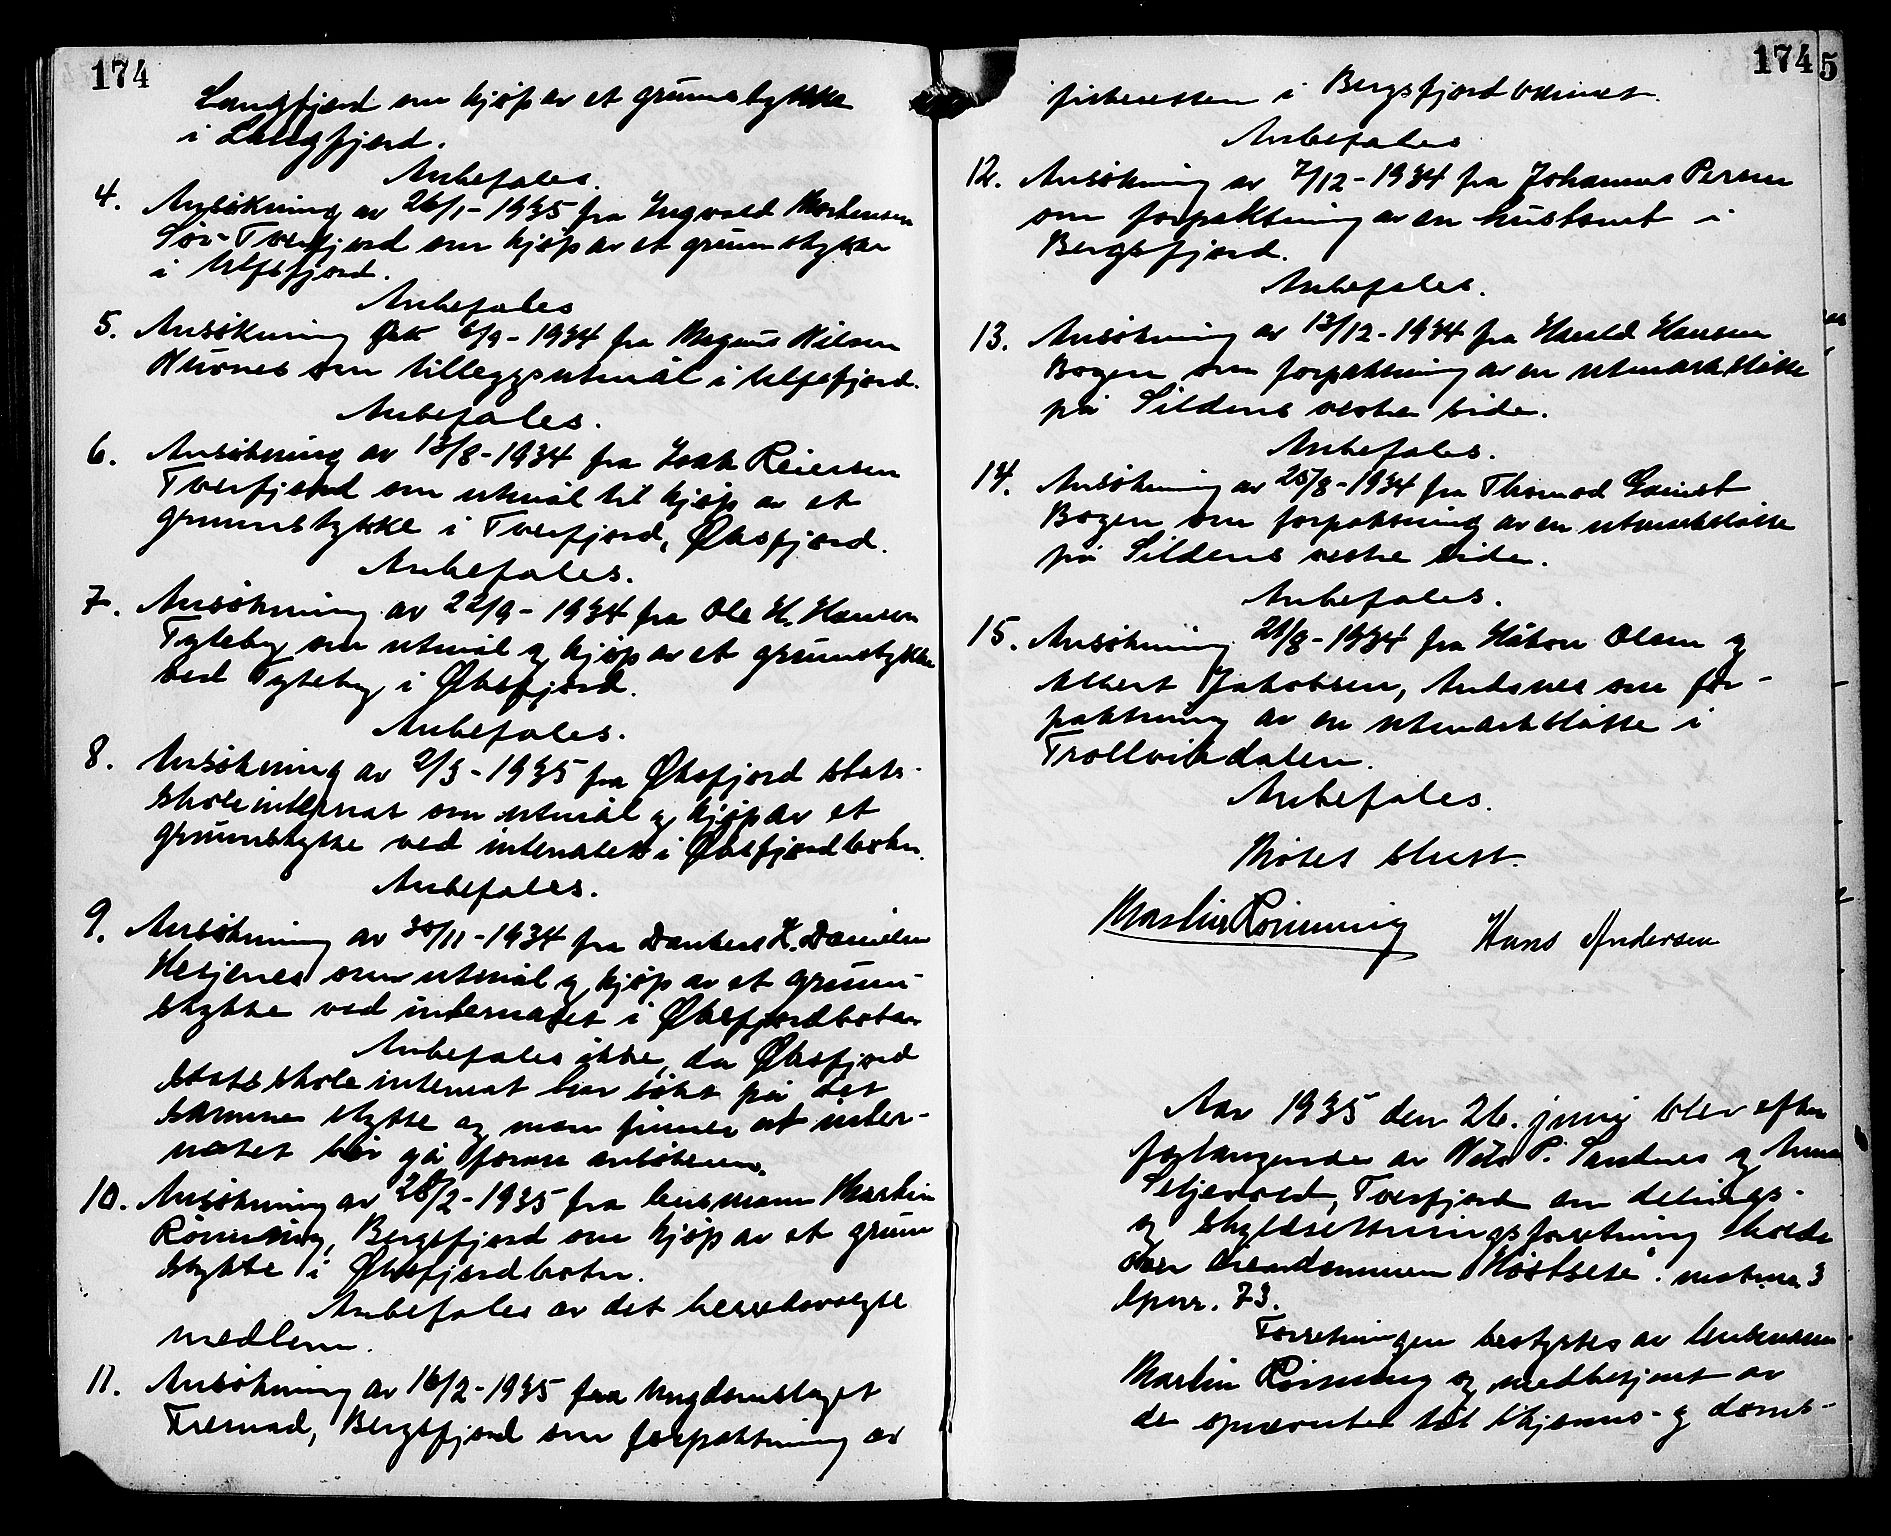 174
Langfjord om kjøp av et grunnstykke
i Langfjord.
Anbefales.
4. Ansökning av 26/1-1935 fra Ingvald Mortensen
Sör-Tverfjord om kjöp av et grunnstykke
i Ulfsfjord.
Anbefales
5. Ansökning 6/9-1934 fra Magnus Nilsen
om tilleggsutmål i Ulfsfjord.
Anbefales.
6. Ansökning av 13/8-1934 fra Isak Reiersen
Tverfjord om utmål til kjøp av et
grunnstykke i Tverfjord, Øksfjord.
Anbefales.
7. Ansökning av 22/9-1934 fra Ole H. Hansen
Tyteby om utmål og kjøp av et grunnstykke
ved Tyteby i Øksfjord.
Anbefales.
8. Ansökning av 2/3-1935 fra Øksfjord stats-
skoleinternat om utmål og kjøp av et
grunnstykke ved internatet i Øksfjordbotn.
Anbefales.
9. Ansökning av 30/11-1934 fra K. Danielsen
Hesjenes om utmål og kjøp av et grunn-
stykke ved internatet i Øksfjordbotn
Anbefales ikke, da Øksfjord
statsskoleinternat har søkt på det
samme stykke og man finner at inter-
natet bør gå foran ansökeren.
10. Ansökning av 28/2-1935 fra lensmann Martin
Rönning, Bergsfjord om kjøp av et grunn
stykke i Øksfjordbotn.
Anbefales av det herredsvalgte
medlem.
11. Ansökning av 16/2-1935 fra Ungdomslaget
Fremad, Bergsfjord om forpaktning av
174 5
fiskeretten i Bergsfjordvannet.
Anbefales
12. Ansökning av 7/12-1934 fra Johannes Persen
om forpaktning av en hustomt i
Bergsfjord.
Anbefales.
13. Ansökning av 13/12-1934 fra Harald Hansen
Bogen om forpaktning av en utmarkslåtte
på Sildens vestre side.
Anbefales.
14. Ansökning av 25/8-1934 fra Thomod
Bogen om forpaktning av en utmarkslåtte
på Sildens vestre side.
Anbefales.
15. Ansökning 21/8-1934 fra Håkon Olsen og
Albert Jakobsen, Andsnes om for-
paktning av en utmarkslåtte i
Trollvikdalen.
Anbefales.
Møtet slutt.
Martin Rönning Hans Andersen
Aar 1935 den 26. juni blev efter
forlangende av Nils P. Sandnes og Anna
Seljevold, Tverfjord om delings-
og skyldsetningsforretning holdt
over eiendommen matr.nr. 3
bnr. 73.
Forretningen bestyrtes av lensmann
Martin Rönning og medbetjent av
de opnevnte til skjønns- og doms-